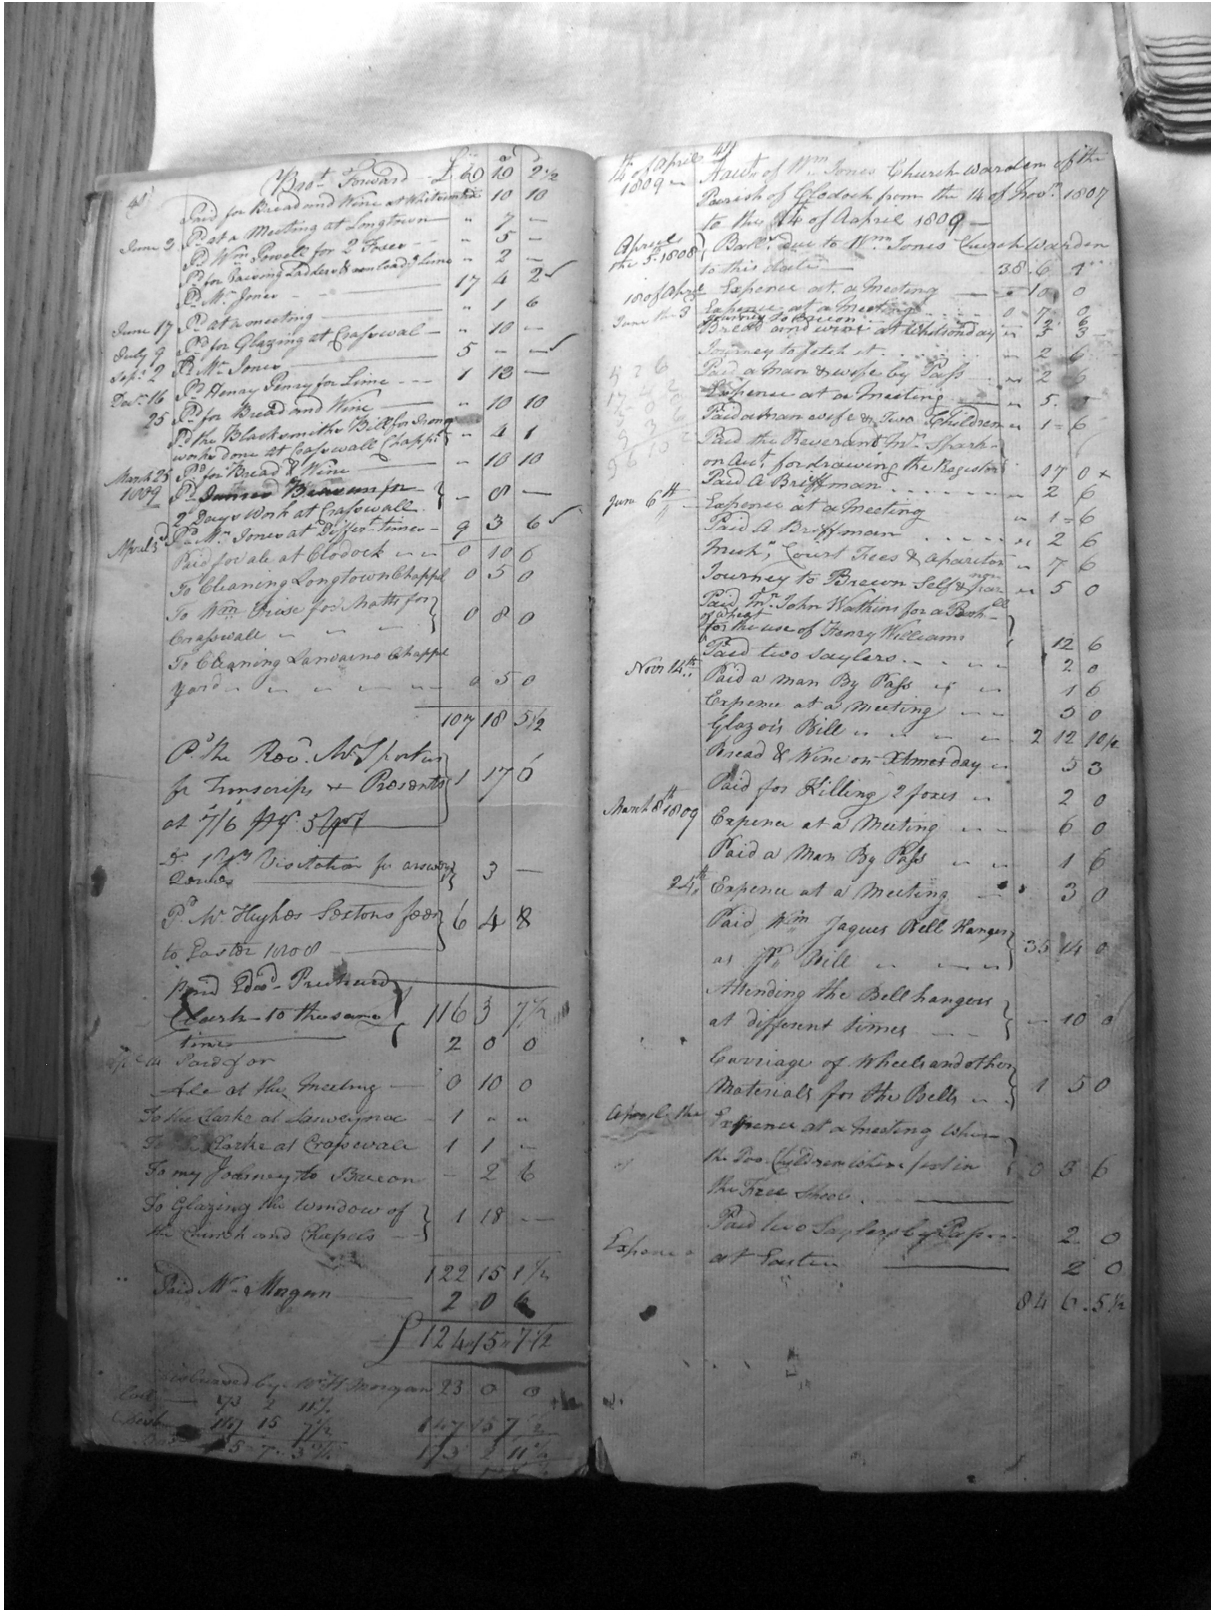 Bro.t Forward £ 60 10 2½
Paid for Bread and Wine at Whitsuntide " 10 10
June 3 P.d at a Meeting at Longtown " 7 —
P.d Wm Powell for 2 Foxes " 5 —
P.d for Ladders & Lime " 2 —
P.d Mr Jones 17 4 2
June 17 P.d at a meeting " 1 6
July 9 P.d for Glazing at Crasswal " 10 —
Sep.r 2 P.d Mr Jones 5 — —
Dec.r 16 P.d Henry Penry for Lime 1 13 —
25 P.d for Bread and Wine " 10 10
P.d the Blacksmiths Bill for Iron
work done at Crasswall Chapp.l " 4 1
March 25 P.d for Bread & Wine " 10 10
1809 P.d
2 Days Work at Crasswall " 8 —
April 3d P.d Mr Jones at Differ.t times 9 3 6
Paid for ale at Clodock 0 10 6
To Cleaning Longtown Chappl 0 5 0
To Wm for Matts for
Crasswall 0 8 0
To Cleaning Chappl
yard 0 5 0
107 18 5½
P.d the Rev.d Mr
for Transcrips & Presents 1 17 6
at 7/6
Visitation 3 —
P.d Mr Hughes Sextons fees 6 4 8
to Easter 1808
Paid Edw.d Prichard
Clark to the same 116 3 7½
times 2 0 0
Paid for
Ale at the Meeting 0 10 0
To the Clarke at 1 " "
To the Clarke at Crasswall 1 1 —
To my Journey to Brecon — 2 6
To Glazing the Window of
the Church and Chapels 1 18 —
122 15 1½
Paid Mr Morgan 2 0 6
£ 124 " 15 " 7½
Disbursed by Mr Morgan 23 0 0
173 2 11½
147 15 7½ 147 15 7½
173 2 11½
41
14th of April 1809 Acct of Wm Jones Church warden of the
Parish of Clodock from the 14 of Nov.r 1807
to the 14 of Aapril 1809 —
Aprill the 5 1808 Ball.e due to Wm Jones Church warden
to this date 38 . 6
18 of Apri Expence at a Meeting 10 0
June the 3 Expence at a Meeting 0 7 0
Journey to Brecon
Bread and wine at Whitsonday 5 3
Journey to fetch it 2 6
Paid a man & wife by Pass 2 6
Expence at a Meeting 5 0
Paid a man wife & Two Children 1 = 6
Paid the Reverant Mr
on Act. for drawing the Register 17 0
Paid A Briffman 2 6
June 6th Expence at a Meeting 1 = 6
Paid A Briffman 2 6
Court Fees & aparitor 7 6
Journey to Brecon Self & 5 0
Paid Mr John Wathins for a
for the use of Henry Williams 12 6
Paid two saylers 2 0
Novr 14th Paid a man By Pass 1 6
Expence at a Meeting 5 0
Glazois Bill 2 12 10½
Bread & Wine on Xtmas day 5 3
Paid for Killing 2 foxes 2 0
March 8th 1809 Expence at a Meeting 6 0
Paid a Man By Pass 1 6
24th Expence at a Meeting 3 0
Paid Wm Jaques Bell Hanger
as pr Bill 35 14 0
Attending the Bellhangers
at different times — 10 0
Carriage of Wheels and other
Materials for the Bells 1 5 0
Expence at a meeting when
the Poo Children where put in 0 3 6
the Free Shool
Paid two Saylers by Pass 2 0
Expence at Easter 2 0
84 6 . 5½